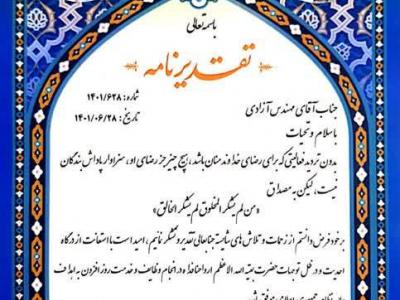 باسمه تعالی
تقدیرنامه
شماره: ۱۴۰۱/۶۲۸
تاریخ: ۱۴۰۱/۰۶/۲۸
جناب آقای مهندس آزادی
با سلام و تحیات
بدون تردید فعالیتی که برای رضای خداوند منان باشد، هیچ چیز جز رضای او، سزاوار پاداش بندگان
نیست، لیکن به مصداق
«من لم یشکر المخلوق لم یشکر الخالق»
بر خود فرض دانستم از زحمات و تلاش های شایسته جنابعالی تقدیر و تشکر نمایم، امید است با استعانت از درگاه
احدیت و در ظل توجهات حضرت بقیه الله الاعظم ارواحنا فداه در انجام وظایف و خدمت روز افزون به اهداف